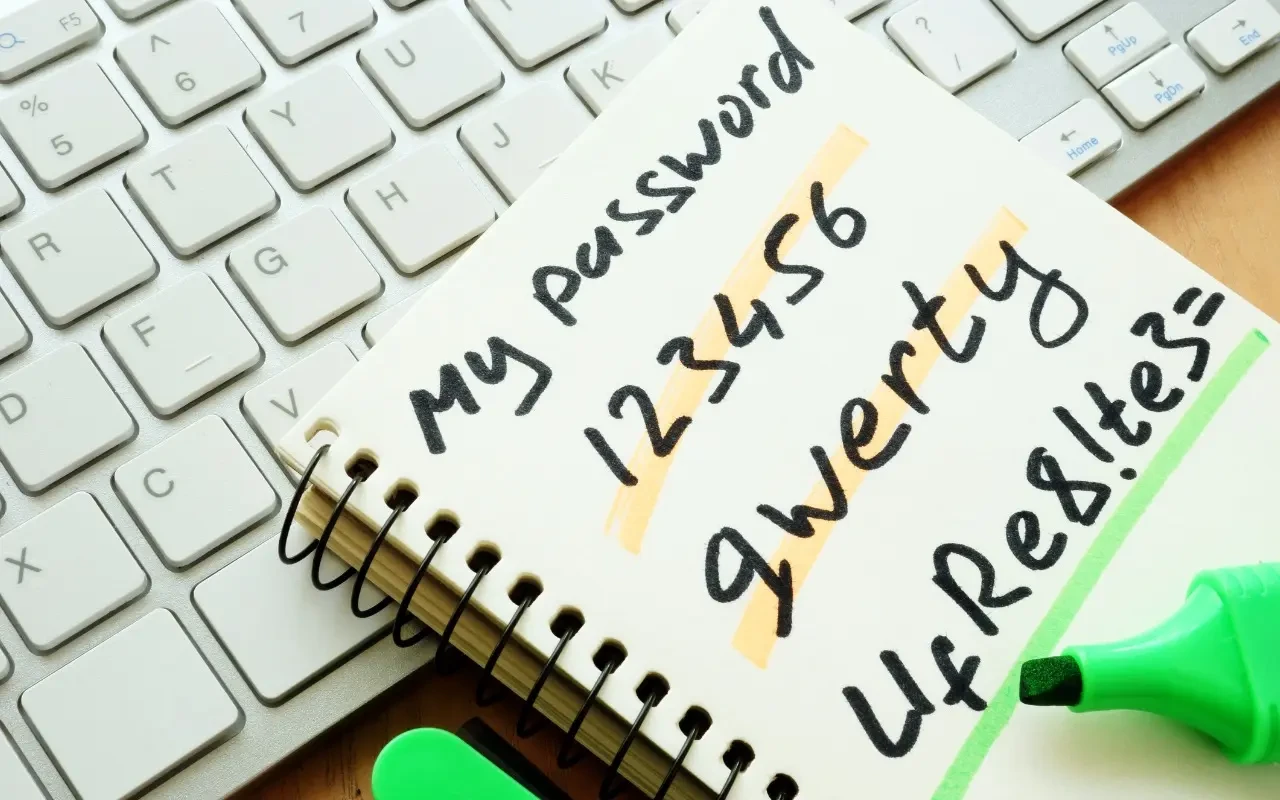 My password
123456
qwerty
UfRe&!te3=
F5
7
^
6
%
5
U
Y
T
R
K
J
H
G
F
D
V
C
X
?
/
PgUp
PgDn
Home
End